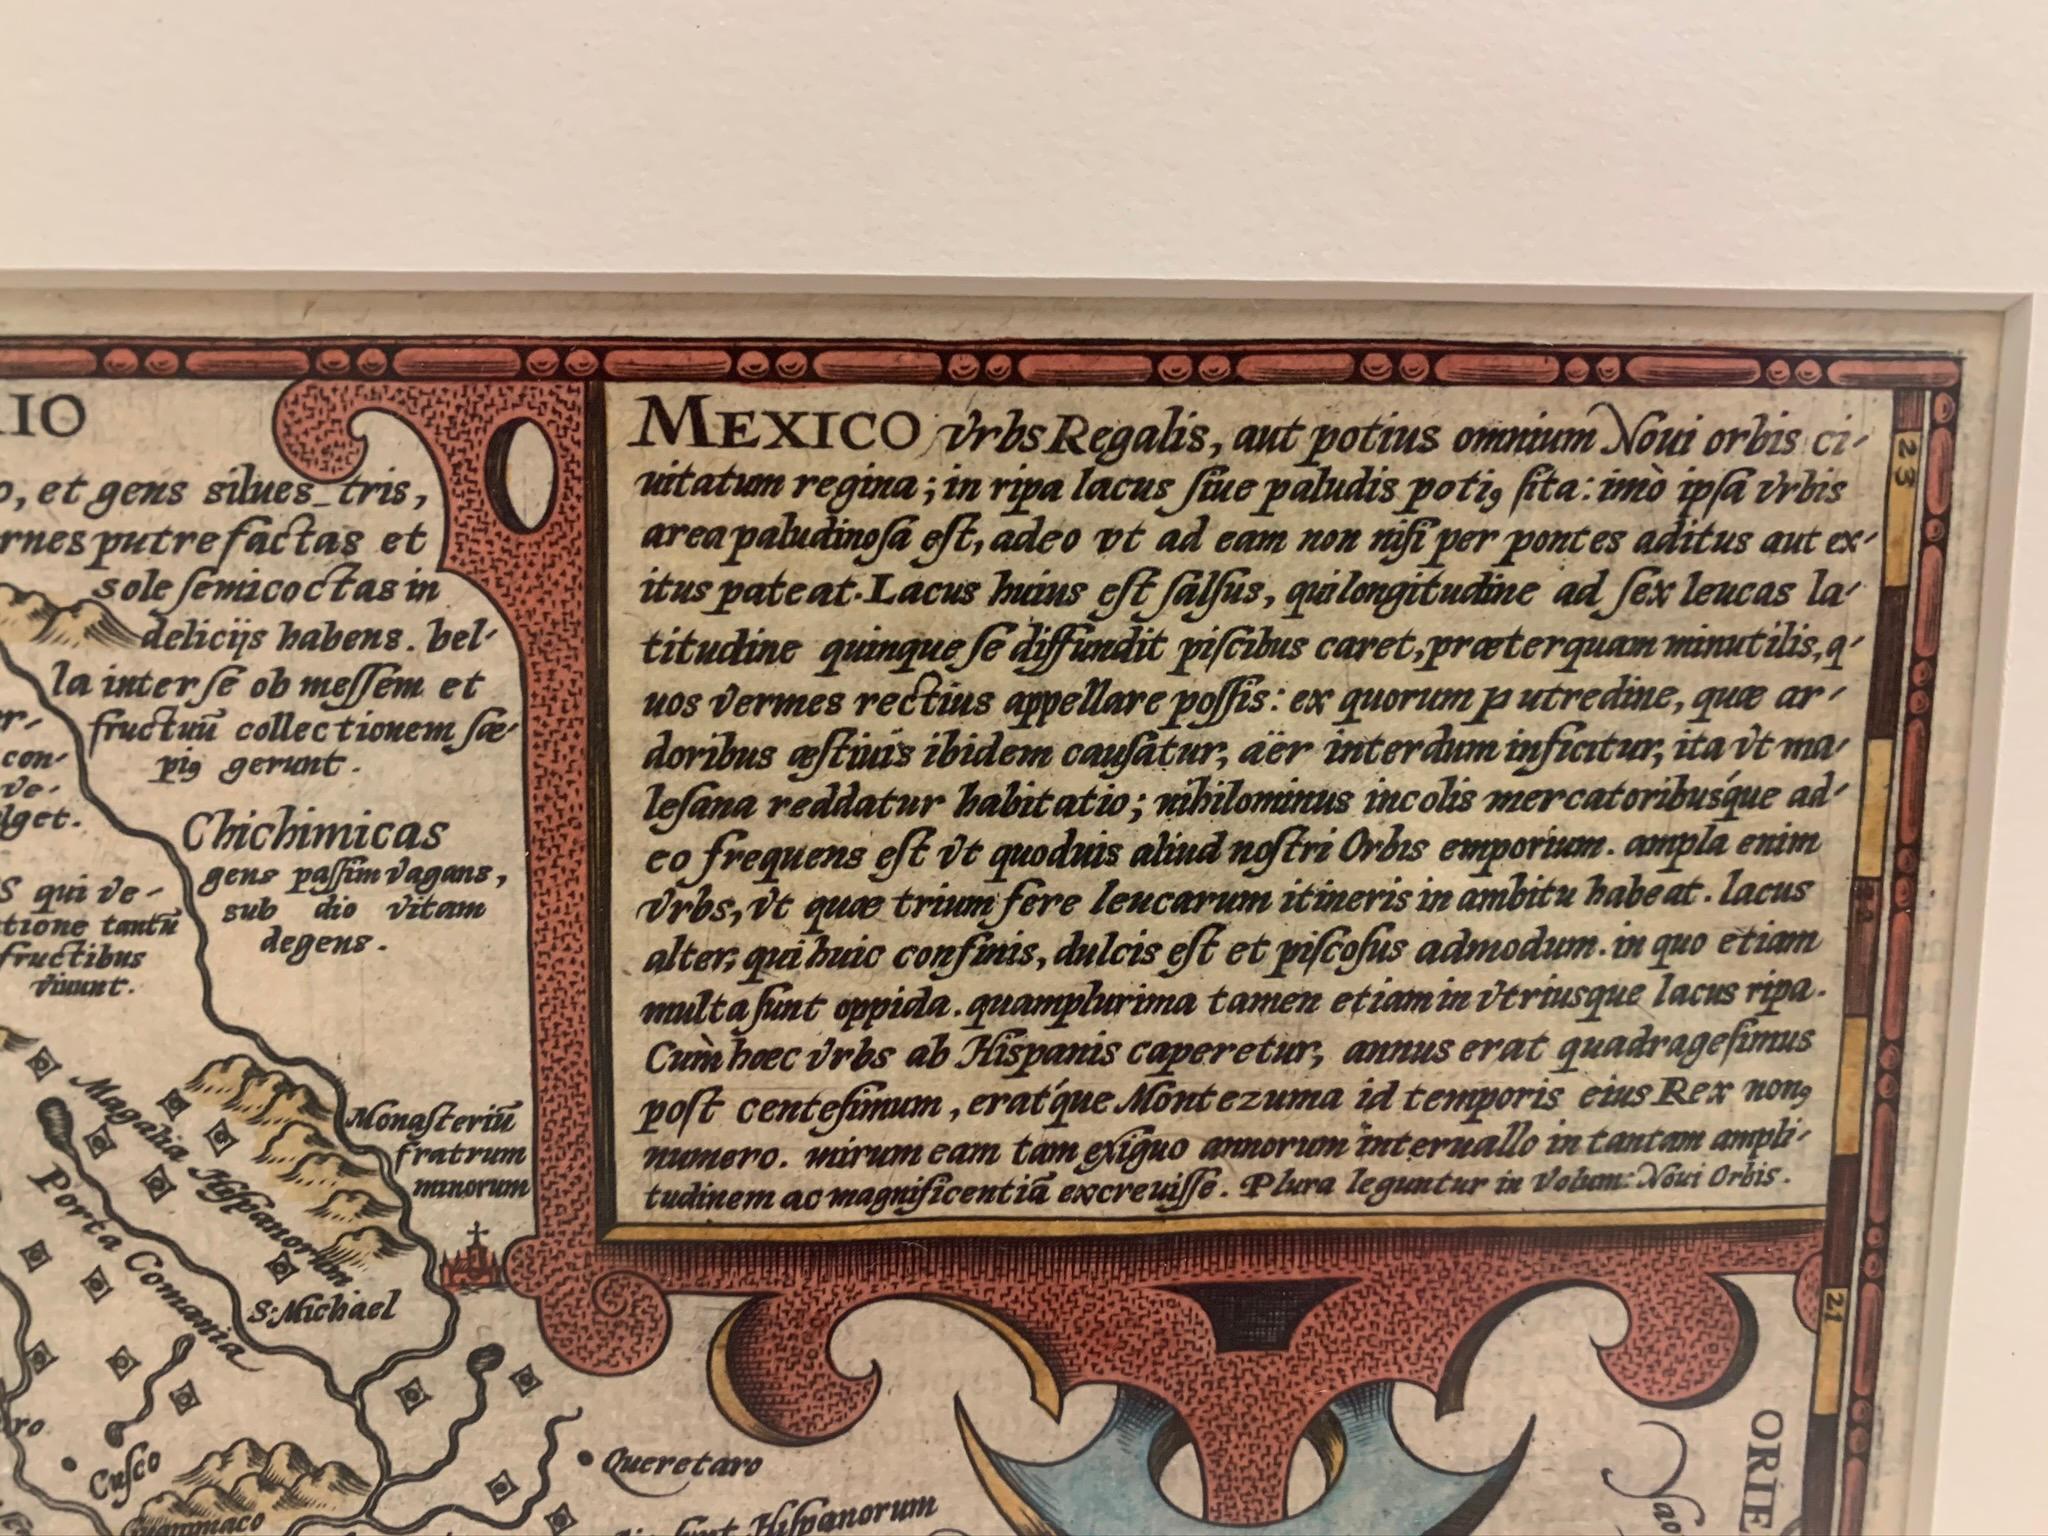 IO
, et gens silues_tris,
rnes putrefactas et
sole semicoctas in
delicijs habens. bel-
la inter se ob messem et
fructuū collectionem sæ-
piꝰ gerunt.
con-
ve-
lget.
Chichimicas
gens passim vagans,
sub dio vitam
degens.
S qui ve-
tione tantū
fructibus
viuunt.
MEXICO Vrbs Regalis, aut potius omnium Noui orbis ci-
uitatum regina; in ripa lacus siue paludis potiꝰ sita: imò ipsa vrbis
area paludinosa est, adeo vt ad eam non nisi per pontes aditus aut ex-
itus pateat. Lacus huius est salsus, qui longitudine ad sex leucas la-
titudine quinque se diffundit piscibus caret, præterquam minutilis, q-
uos vermes rectius appellare possis: ex quorum putredine, quæ ar-
doribus æstiuis ibidem causatur, aër interdum inficitur, ita vt ma-
lesana reddatur habitatio; nihilominus incolis mercatoribusque ad-
eo frequens est vt quoduis aliud nostri Orbis emporium. ampla enim
vrbs, vt quæ trium fere leucarum itineris in ambitu habeat. lacus
alter, qui huic confinis, dulcis est et piscosus admodum. in quo etiam
multa sunt oppida. quamplurima tamen etiam in vtriusque lacus ripa.
Cùm hæc vrbs ab Hispanis caperetur, annus erat quadragesimus
post centesimum, eratque Montezuma id temporis eius Rex nonꝰ
numero. mirum eam tam exiguo annorum interuallo in tantam ampli-
tudinem ac magnificentiā excreuisse. Plura leguntur in Volum: Noui Orbis.
23
21
ORIE
Magalia Hispanorum
Monasteriū
fratrum
minorum
Porta Comania
S. Michael
Cusco
Queretaro
Hispanorum